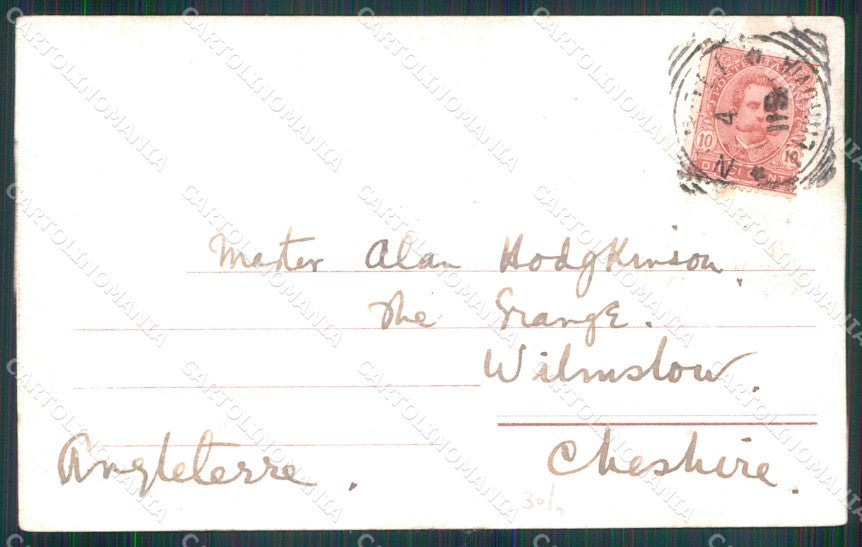 Master Alan Hodgkinson.
The Grange.
Wilmslow.
Cheshire.
Angleterre.
10
DIECI CENT
4
30/.
CARTOLINOMANIA